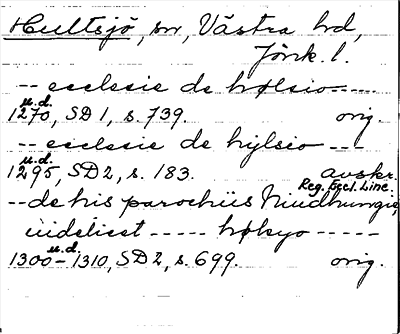 Hultsjö, sn, Västra hd,
Jönk. l.
-- ecclesie de hølsio ----
u.d.
1270, SD 1, s. 739. orig.
-- ecclesie de hylsio ---
u.d.
1295, SD 2, s. 183. avskr.
Reg. Eccl. Linc.
-- de his parochiis Niudhungie,
uidelicet ----- hølsyo -----
u.d.
1300-1310, SD 2, s. 699. orig.